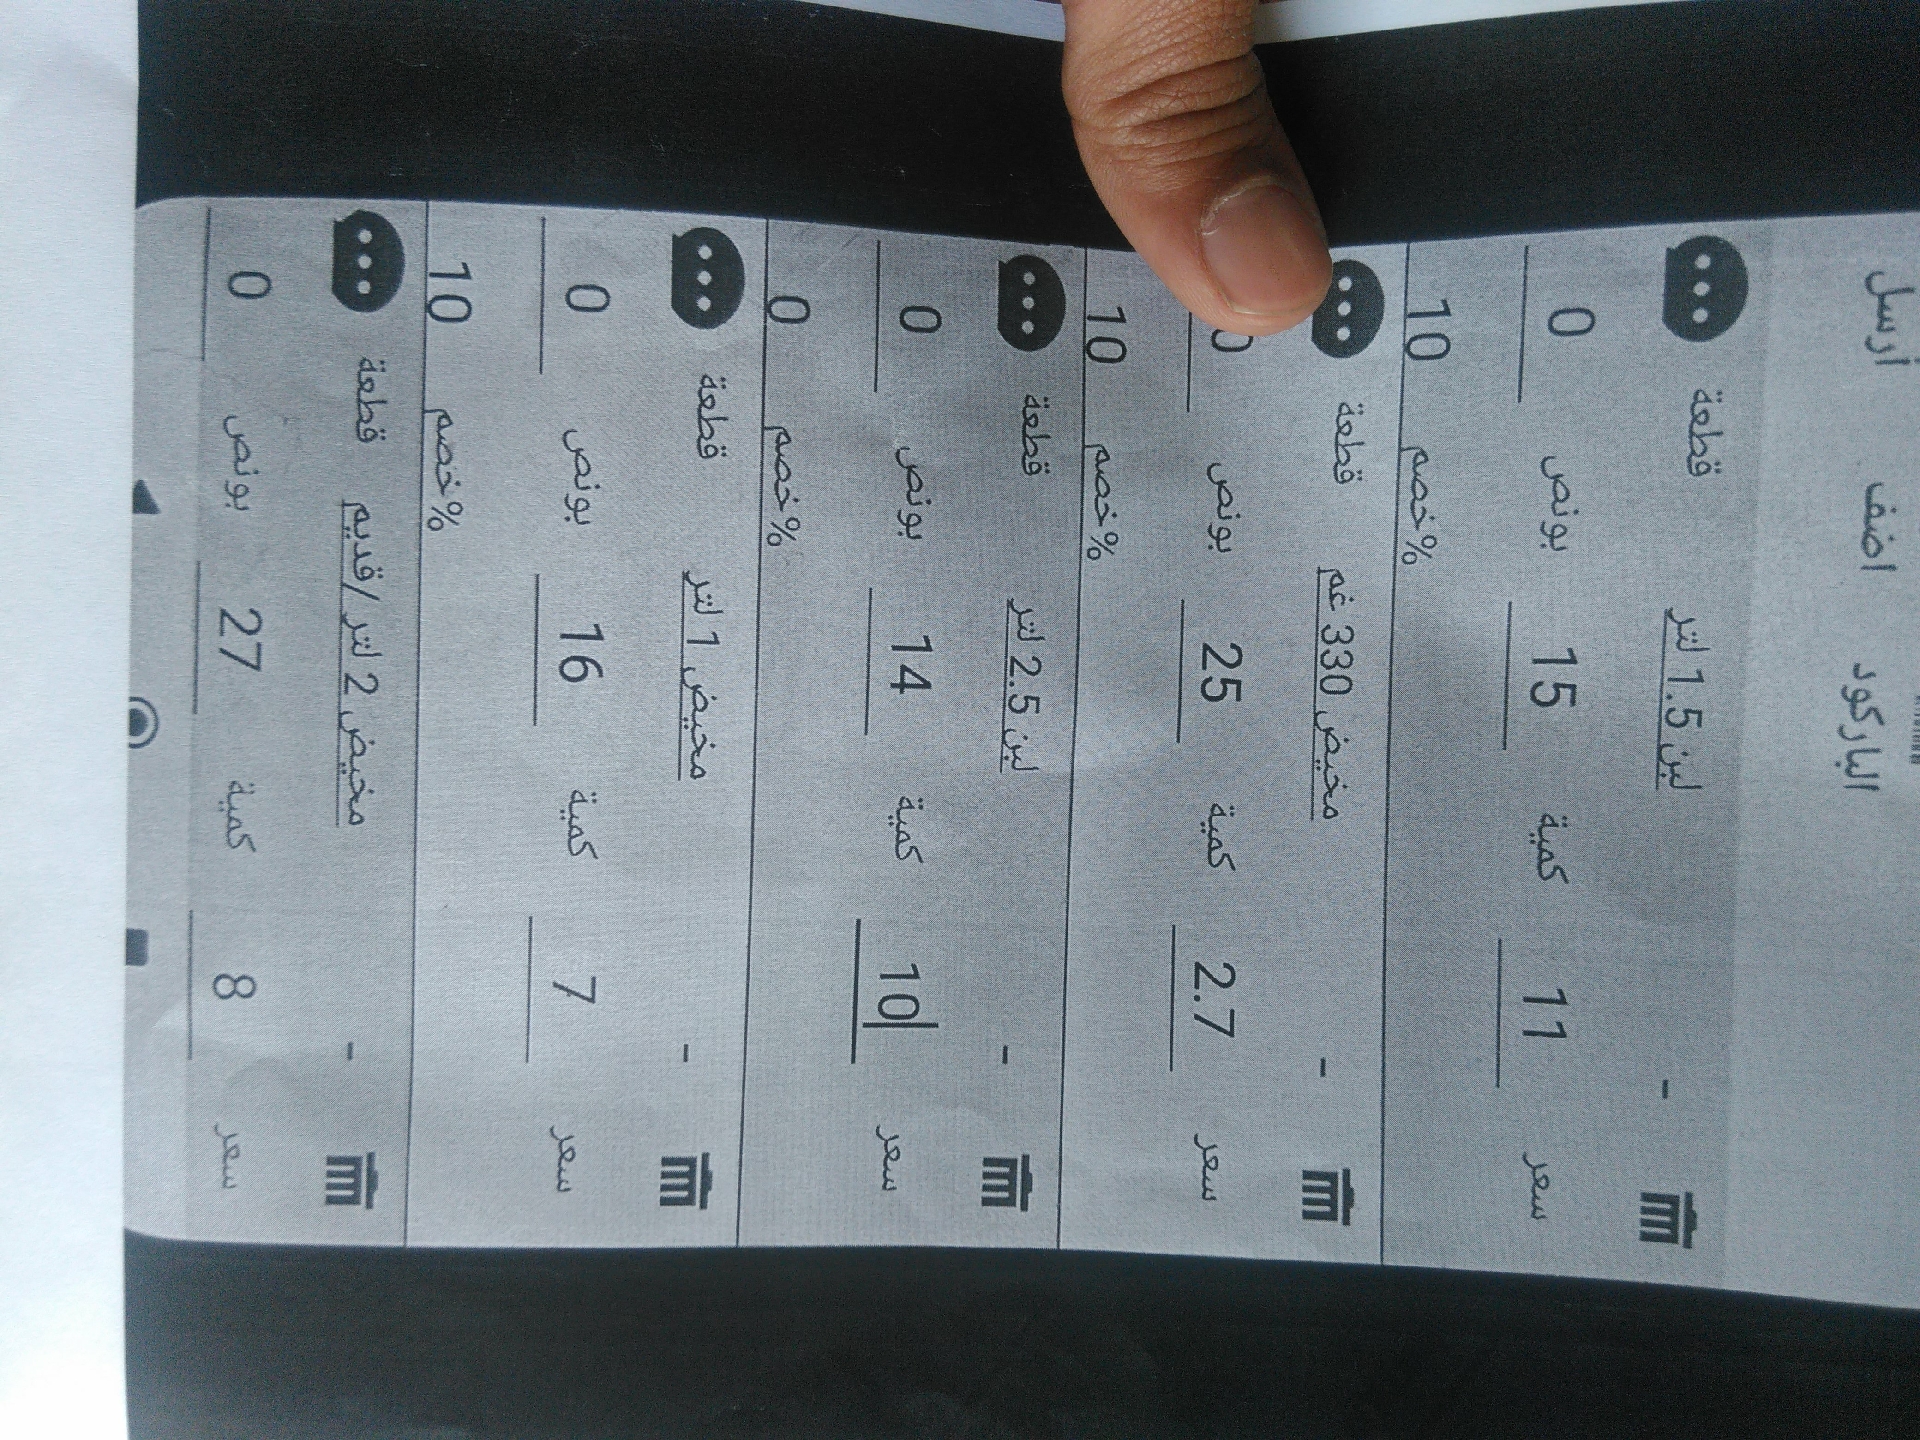 أرسل اضف الباركود
قطعة لبن 1.5 لتر -
0 بونص 15 كمية 11 سعر
10 خصم%
قطعة مخيض 330 غم -
0 بونص 25 كمية 2.7 سعر
10 خصم%
قطعة لبن 2.5 لتر -
0 بونص 14 كمية 10 سعر
0 خصم%
قطعة مخيض 1 لتر -
0 بونص 16 كمية 7 سعر
10 خصم%
قطعة مخيض 2 لتر /قديم -
0 بونص 27 كمية 8 سعر